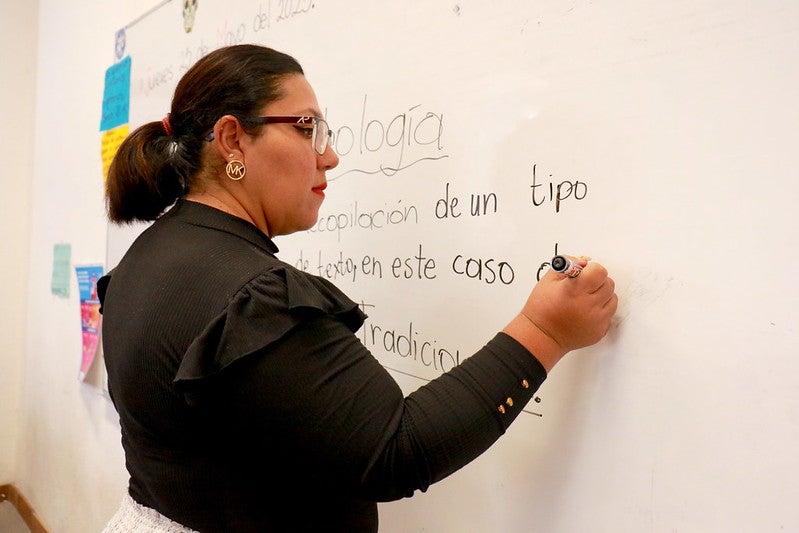 Jueves de Mayo del 2025.
ología
ecopilación de un tipo
de texto, en este caso d
Tradicio
MK